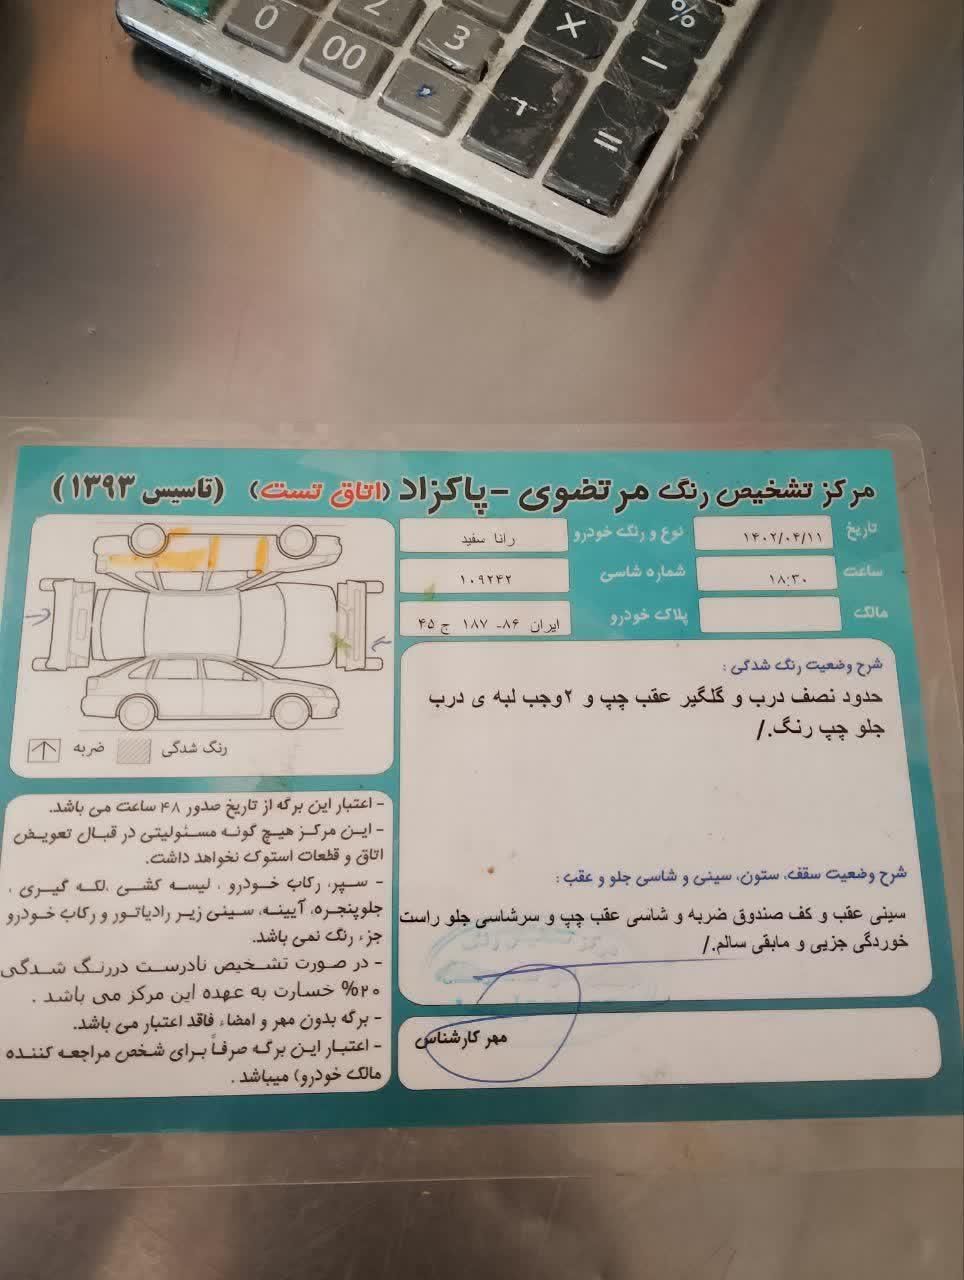 0
2
3
×
%
00
.
-
=
مرکز تشخیص رنگ مرتضوی - پاکزاد (اتاق تست) (تاسیس ۱۳۹۳)
تاریخ ۱۴۰۲/۰۴/۱۱ نوع و رنگ خودرو رانا سفید
ساعت ۱۸:۳۰ شماره شاسی ۱۰۹۲۴۲
مالک پلاک خودرو ایران ۸۶- ۱۸۷ ج ۴۵
شرح وضعیت رنگ شدگی :
حدود نصف درب و گلگیر عقب چپ و ۲وجب لبه ی درب
جلو چپ رنگ./
شرح وضعیت سقف، ستون، سینی و شاسی جلو و عقب :
سینی عقب و کف صندوق ضربه و شاسی عقب چپ و سرشاسی جلو راست
خوردگی جزیی و مابقی سالم./
مهر کارشناس
رنگ شدگی ضربه
- اعتبار این برگه از تاریخ صدور ۴۸ ساعت می باشد.
- این مرکز هیچ گونه مسئولیتی در قبال تعویض
اتاق و قطعات استوک نخواهد داشت.
- سپر، رکاب خودرو ، لیسه کشی ،لکه گیری ،
جلوپنجره، آیینه، سینی زیر رادیاتور و رکاب خودرو
جزء رنگ نمی باشد.
- در صورت تشخیص نادرست دررنگ شدگی
۲۰% خسارت به عهده این مرکز می باشد .
- برگه بدون مهر و امضاء فاقد اعتبار می باشد.
- اعتبار این برگه صرفاً برای شخص مراجعه کننده
مالک خودرو) میباشد .